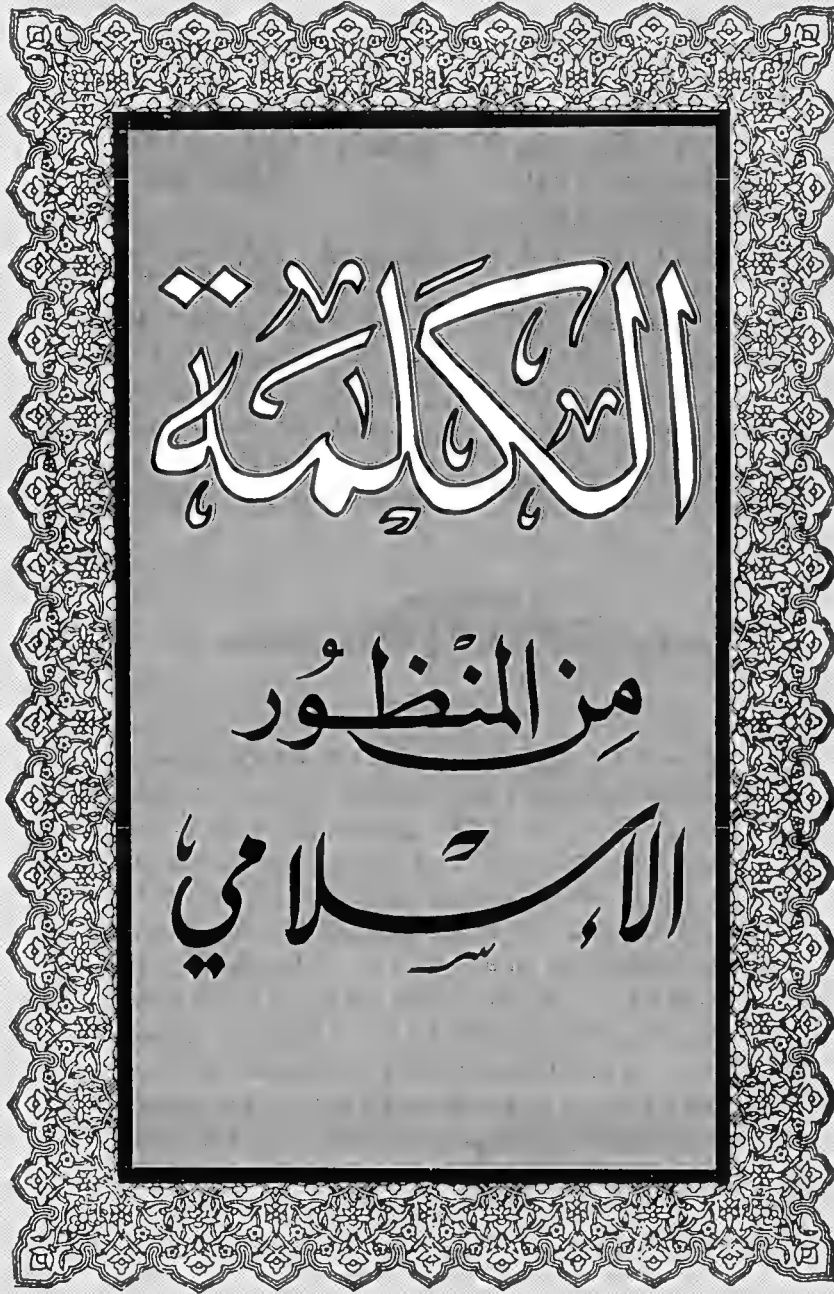 الكَلمة
مِن المنْظُور
الإِسلامي